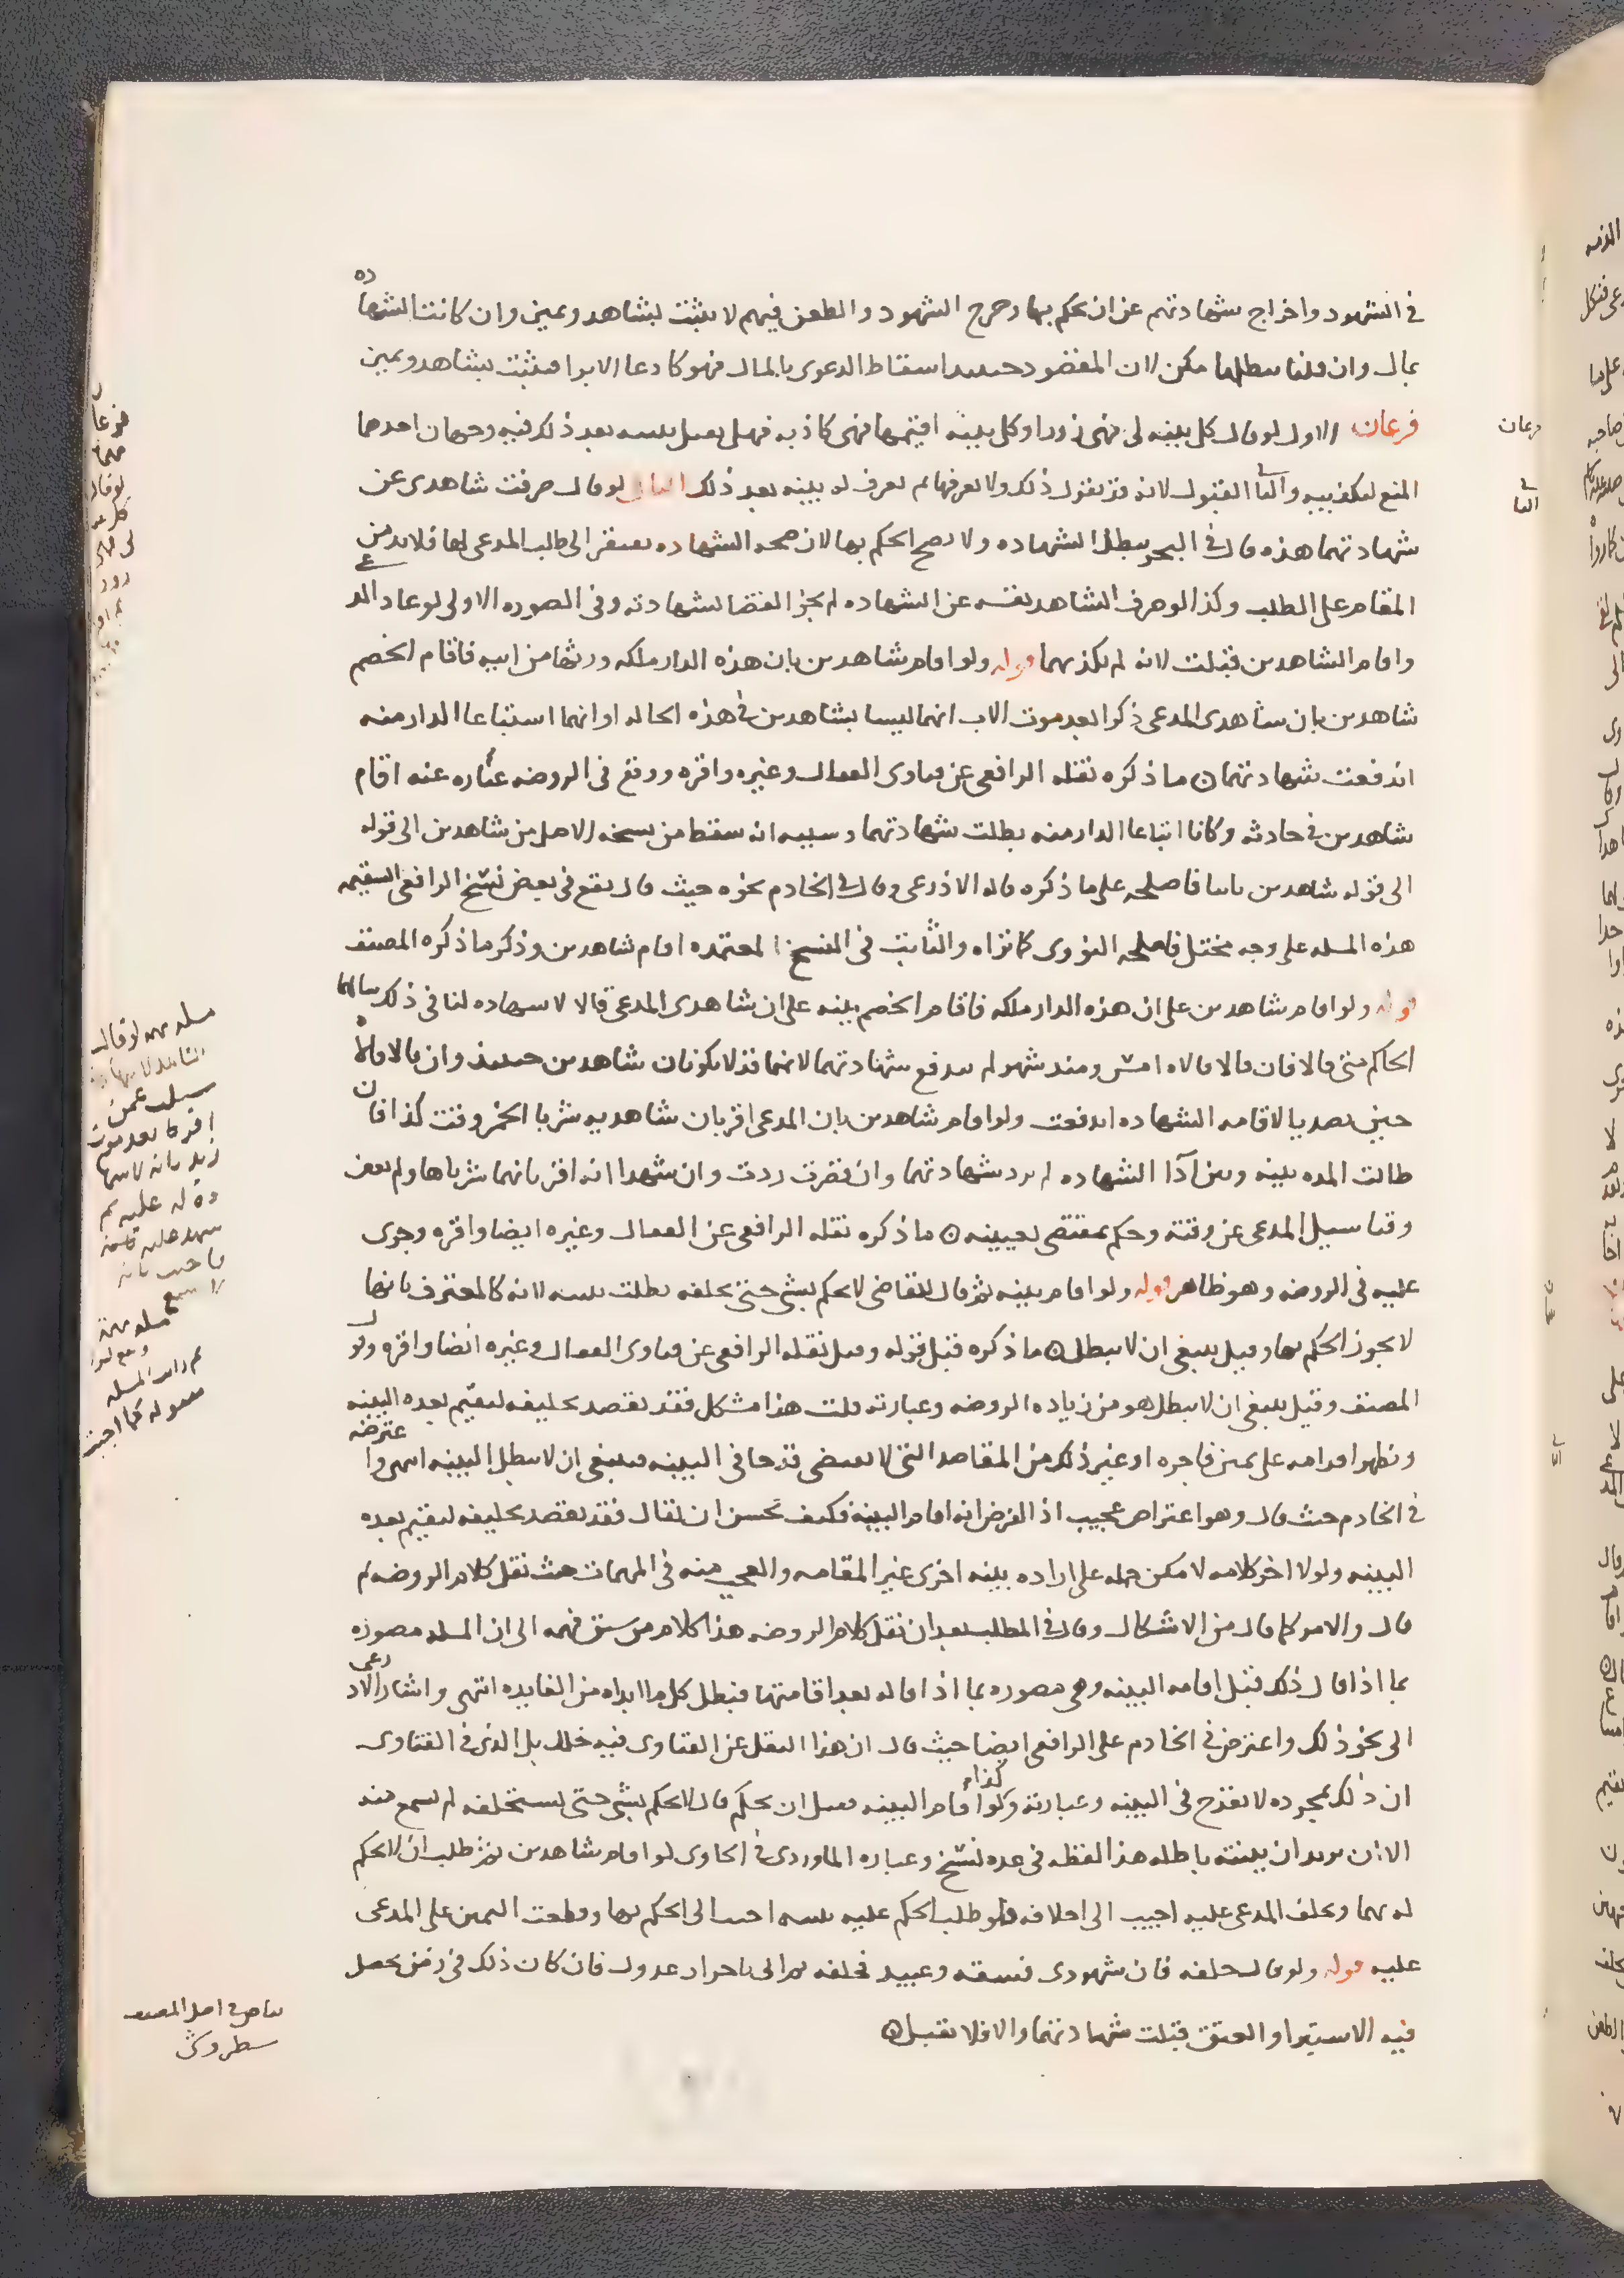 في الشهود واخراج شهادتهم عن ان يحكم بها وجرح الشهود والطعن فيهم لا يثبت بشاهد ويمين وان كانت الشهاده
بمال وان قلنا يبطلها مكن لان المقصود حينئذ اسقاط الدعوى بالمال فهو كادعا الابرا فيثبت بشاهد ويمين
فرعان الاول لو قال كل بينه لي فهي زور او كل بينه اقيمها فهي كاذبه فهل يقبل بينته بعد ذلك فيه وجهان احدهما
المنع لتكذيبه والثاني القبول لانه قد يقول ذلك ولا يعرفها ثم يعرف له بينه بعد ذلك الثاني لو قال صرفت شاهدي عن
شهادتهما هذه قال في البحر يبطل الشهاده ولا يصح الحكم بها لان صحه الشهاده يفتقر الى طلب المدعي لها فلا بد من
المقام على الطلب وكذا لو صرف الشاهد نفسه عن الشهاده لم يجز القضا بشهادته وفي الصوره الاولى لو عاد المدعي
واقام الشاهدين قبلت لانه لم يكذبهما قوله ولو اقام شاهدين بان هذه الدار ملكه ورثها من ابيه فاقام الخصم
شاهدين بان شاهدي المدعي ذكرا بعد موت الاب انهما ليسا بشاهدين في هذه الحاله او انهما استباعا الدار منه
اندفعت شهادتهما ن ما ذكره نقله الرافعي عن فتاوى القفال وغيره واقره ووقع في الروضه عباره عنه اقام
شاهدين في حادثه وكانا ابتاعا الدار منه بطلت شهادتهما وسببه انه سقط من نسخه الاصل من شاهدين الى قوله
الى قوله شاهدين فاصلحه على ما ذكره قاله الاذرعي وقال في الخادم نحوه حيث قال يقع في بعض نسخ الرافعي السقيمه
هذه المسله على وجه مختل فاصلحه النووي كما تراه والثابت في النسخ المعتمده اقام شاهدين وذكر ما ذكره المصنف
قوله ولو اقام شاهدين على ان هذه الدار ملكه فاقام الخصم بينه على ان شاهدي المدعي قالا لا شهاده لنا في ذلك سالهما
الحاكم متى قالا فان قالا قالاه امس ومنذ شهر لم يدفع شهادتهما لانهما قد لا يكونان شاهدين حينئذ وان قالا قالاه
حين تصديا لاقامه الشهاده اندفعت ولو اقام شاهدين بان المدعي اقر بان شاهديه شربا الخمر وقت كذا فان
طالت المده بينه وبين آدا الشهاده لم يرد شهادتهما وان قصرت ردت وان شهدا انه اقر بانهما شرباها ولم يعين
وقتا سيل المدعي عن وقته وحكم بمقتضى تعيينه ن ما ذكره نقله الرافعي عن القفال وغيره ايضا واقره وجرى
عليه في الروضه وهو ظاهر قوله ولو اقام بينه ثم قال للقاضي لا يحكم بشي حتى يحلفه بطلت بينته لانه كالمعترف بانها
لا يجوز الحكم بها وقيل ينبغي ان لا يبطل ن ما ذكره قبل قوله وقيل نقله الرافعي عن فتاوى القفال وغيره ايضا واقره وقول
المصنف وقيل ينبغي ان لا يبطل هو من زياده الروضه وعبارته قلت هذا مشكل فقد يقصد تحليفه ليقيم بعده البينه
ويظهر اقدامه على يمين فاجره او غير ذلك من المقاصد التي لا يقتضي قدحا في البينه فينبغي ان لا يبطل البينه انتهى واعترضه
في الخادم حيث قال وهو اعتراض عجيب اذ الفرض انه اقام البينه فكيف يحسن ان يقال فقد يقصد تحليفه ليقيم بعده
البينه ولولا اخر كلامه لامكن حمله على اراده بينه اخرى غير المقامه والعجب منه في المهمات حيث نقل كلام الروضه ثم
قال والامر كما قال من الاشكال وقال في المطلب بعد ان نقل كلام الروضه هذا كلام من سبق فهمه الى ان المسله مصوره
بما اذا قال ذلك قبل اقامه البينه وهي مصوره بما اذا قاله بعد اقامتها فبطل كل ما ابداه من الفايده انتهى واشار الاذرعي
الى نحو ذلك واعترض في الخادم على الرافعي ايضا حيث قال ان هذا النقل عن الفتاوى فيه خلل بل الذي في الفتاوى
ان ذلك بمجرده لا يقدح في البينه وعبارته ولو اقام البينه فقبل ان يحكم قال لا يحكم بشي حتى يستحلفه لم يسمع منه
الا ان يريد ان بينته باطله هذا لفظه في عده نسخ وعباره الماوردي في الحاوي لو اقام شاهدين ثم طلب ان لا يحكم
له بهما ويحلف المدعى عليه اجيب الى احلافه فلو طلب الحكم عليه ببينته اجيب الى الحكم بها وقطعت اليمين على المدعى
عليه قوله ولو قال حلفه فان شهودي فسقه وعبيد فحلفه ثم اتى باحرار عدول فان كان ذلك في زمن يحصل
فيه الاستبرا والعتق قبلت شهادتهما والا فلا يقبل ن
فرعان
الثاني
مسله مهمه لو قال
افر كا بعد موت
زيد بانه لا شها
ده له عليه ثم
ثم رايت المسله
منقوله كما اجبت
بياض في اصل المصنف
سطر وشي